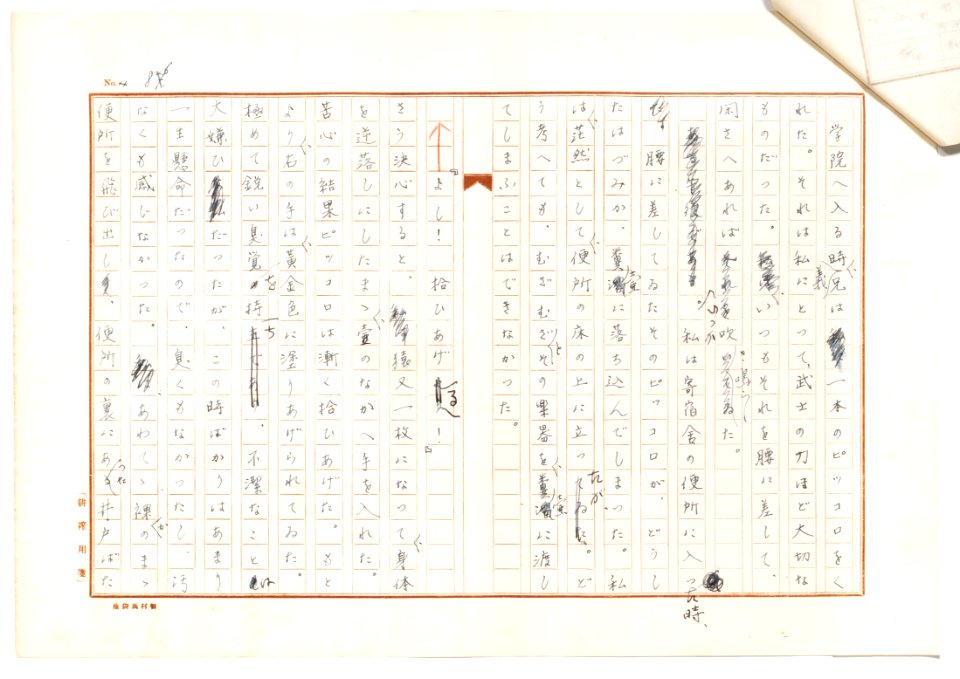 No. 8
学院へ入る時、義兄は一本のピッコロをく
れた。それは私にとって、武士の刀ほど大切な
ものだった。いつもそれを腰に差して、
閑さへあればそれを吹き鳴らした。
私は寄宿舎の便所に入った時、
腰に差してゐたそのピッコロが、どうし
たはづみか、糞窯に落ち込んでしまった。私
は茫然として、便所の床の上に立ってゐたが。ど
う考へても、むざむざとその楽器を糞窯に渡し
てしまふことはできなかった。
『よし! 拾ひあげる!』
さう決心すると、猿又一枚になって、身体
を逆落しにしたまゝ、壷のなかへ手を入れた。
苦心の結果ピッコロは漸く拾ひあげた。もと
より、右の手は、黄金色に塗りあげられてゐた。
極めて鋭い臭覚を持ち、不潔なことは
大嫌ひだったが、この時ばかりはあまり
一生懸命だったので、臭くもなかったし、汚
なくも感じなかった。あわてゝ裸のまゝ
便所を飛び出し、便所の裏にあった井戸ばた